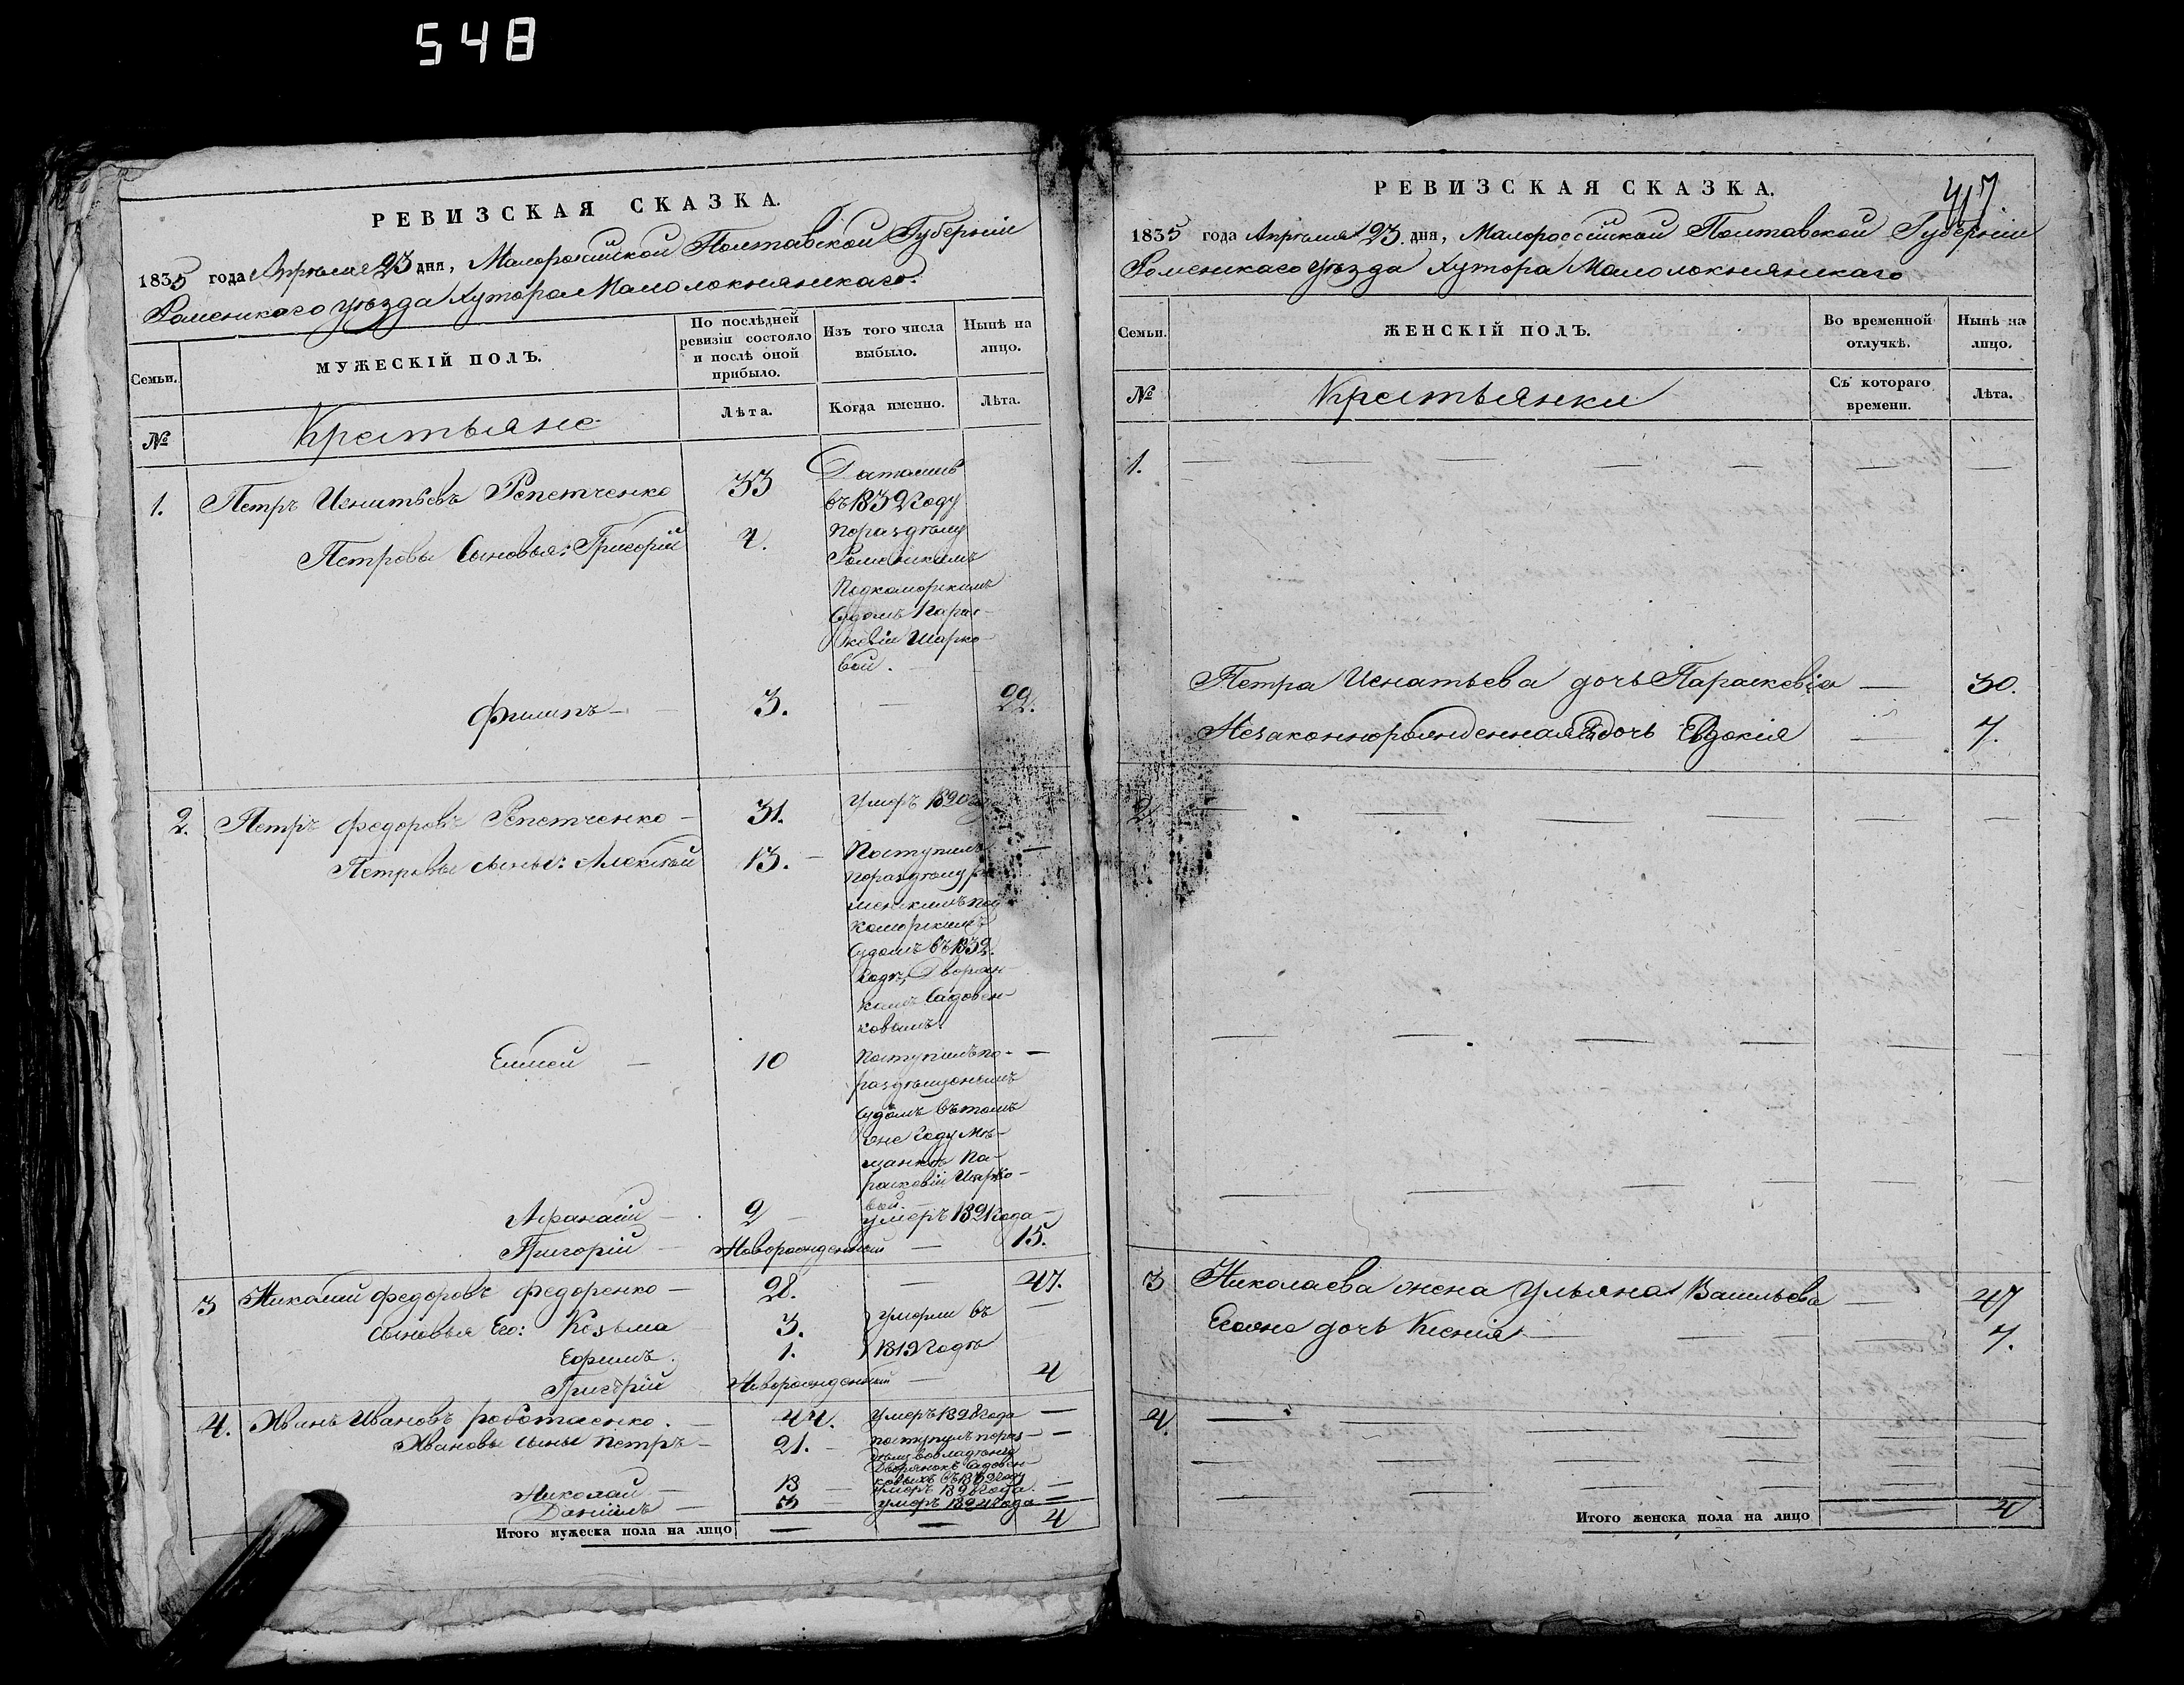 548
РЕВИЗСКАЯ СКАЗКА.
1835 года Апрѣля 23 дня, Малороссійской Полтавской Губерніи
Роменскаго уѣзда Хутора Малолокнянскаго.
Семьи.
МУЖЕСКІЙ ПОЛЪ.
По послѣдней ревизіи состояло и послѣ оной прибыло.
Изъ того числа выбыло.
Нынѣ на лицо.
№
Крестьяне
Лѣта.
Когда именно.
Лѣта.
1. Петръ Игнатьевъ Репетченко 33
въ 1832 Году
Петровы Сыновья: Григорій 4.
поразделу
Роменскимъ
Подкоморскимъ
Судомъ Парас-
кевіи Шарко-
вой.
Филипъ 3. — 22.
2. Петръ Федоровъ Репетченко — 31. умеръ 1820
Петровы сыны: Алексѣй 13. — Поступилъ —
поразделу Ро
менскимъ под
коморскимъ
Судомъ въ 1832
Годѣ, Дворян-
камъ Садовен-
ковымъ.
Елисей — 10 Поступилъ по- —
разделу онымъ
Судомъ въ томъ
же Году Мѣ-
щанкѣ Па-
расковіи Шарко-
вой.
Афанасій — 2 — умеръ 1821 года —
Григорій — Новорожденный — 15.
3 Николай Федоровъ Федоренко — 28. — 47.
сыновья Его: Козьма 3. умерли въ —
Ефимъ. 1. 1819 Годѣ
Григорій Новорожденный — 4
4. Иванъ Ивановъ 44. умеръ 1828 года —
Ивановы сыны Петръ — 21. — поступилъ пораз- —
делу во владѣніе
Дворянокъ Садовен-
ковыхъ въ 1832 Году
Николай — 13 — умеръ 1828 года. —
Даніилъ — 3 — умеръ 1824 года —
Итого мужеска пола на лицо — — 4
РЕВИЗСКАЯ СКАЗКА.
417
1835 года Апрѣля 23. дня, Малороссійской Полтавской Губерніи
Роменскаго уѣзда Хутора Малолокнянскаго
Семьи.
ЖЕНСКІЙ ПОЛЪ.
Во временной отлучкѣ.
Нынѣ на лицо.
№
Крестьянки
Съ котораго времени.
Лѣта.
1.
Петра Игнатьева дочь Параскевія — 30.
Незаконнорожденная дочь Евдокія — 7.
2.
3 Николаева жена Ульяна Васильева — 47
Егоже дочь Ксенія — 7.
4.
Итого женска пола на лицо — 4